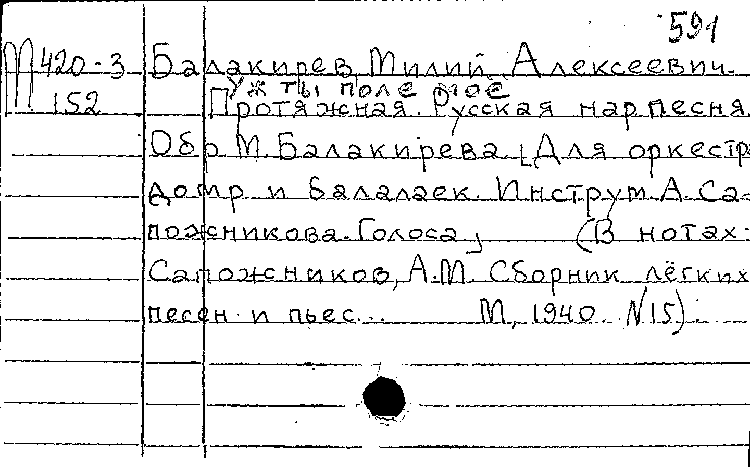 591
М 420-3 Балакирев, Милий Алексеевич.
Уж ты поле мое
152 Протяжная. Русская нар песня.
Обр М. Балакирева. [Для оркестра
домр и балалаек. Инструм. А. Са-
пожникова. Голоса] (В нотах:
Сапожников, А.М. Сборник лёгких
песен и пьес... М, 1940. N15).